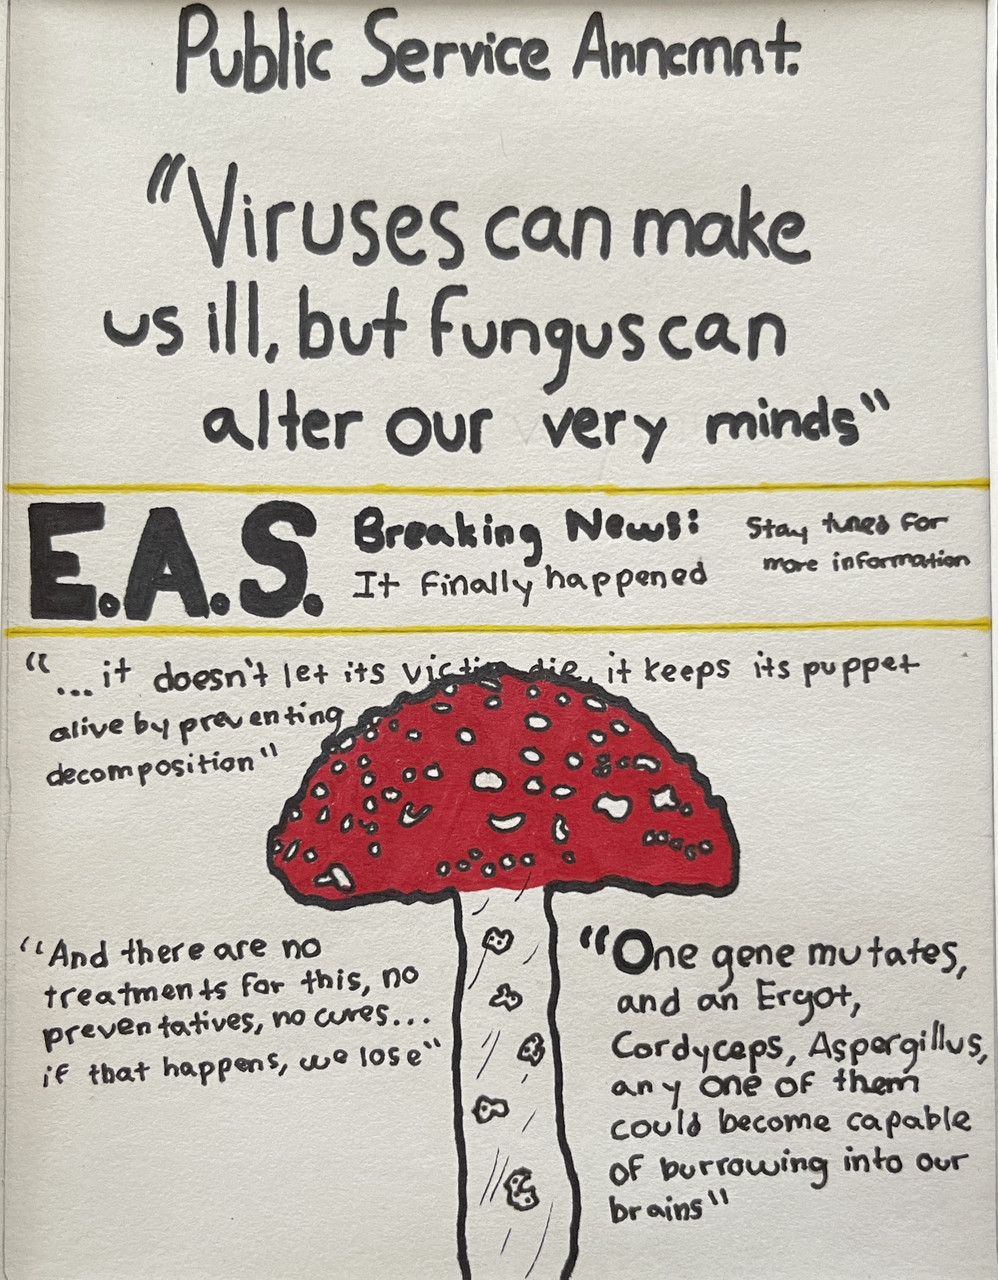 Public Service Anncmnt.
"Viruses can make
us ill, but fungus can
alter our very minds"
E.A.S.
Breaking News:
It finally happened
Stay tuned for
more information
"...it doesn't let its victim die, it keeps its puppet
alive by preventing
decomposition"
"And there are no
treatments for this, no
preventatives, no cures...
if that happens, we lose"
"One gene mutates,
and an Ergot,
Cordyceps, Aspergillus,
any one of them
could become capable
of burrowing into our
brains"